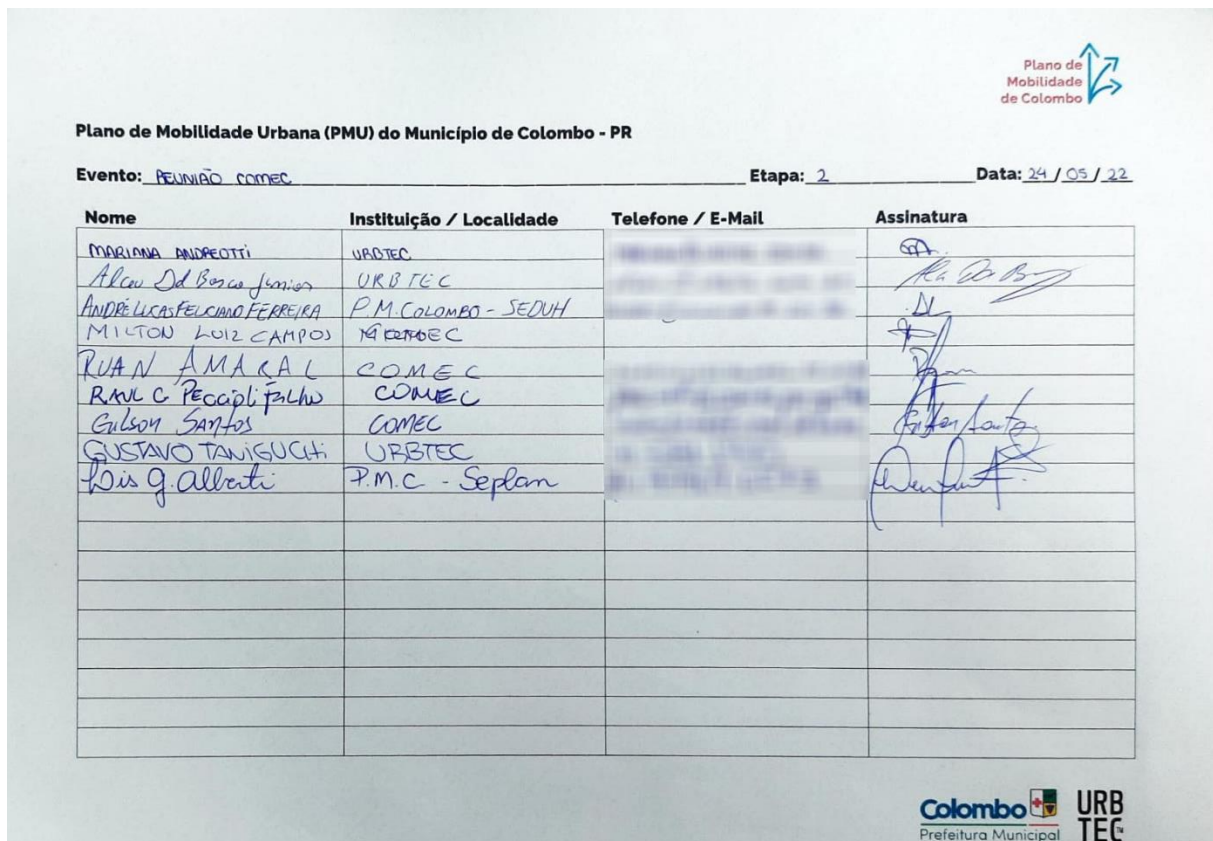 Plano de
Mobilidade
de Colombo
Plano de Mobilidade Urbana (PMU) do Município de Colombo - PR
Evento: REUNIÃO COMEC Etapa: 2 Data: 24 / 05 / 22
Nome Instituição / Localidade Telefone / E-Mail Assinatura
MARIANA ANDREOTTI URBTEC
Alceu Dal Bosco Junior URBTEC
ANDRÉ LUCAS FELICIANO FERREIRA P.M. COLOMBO - SEDUH
MILTON LUIZ CAMPOS
RUAN AMARAL COMEC
RAUL G FILHO COMEC
Gilson Santos COMEC
GUSTAVO TANIGUCHI URBTEC
G. Alberti P.M.C - Seplan
Colombo
Prefeitura Municipal
URB
TEC